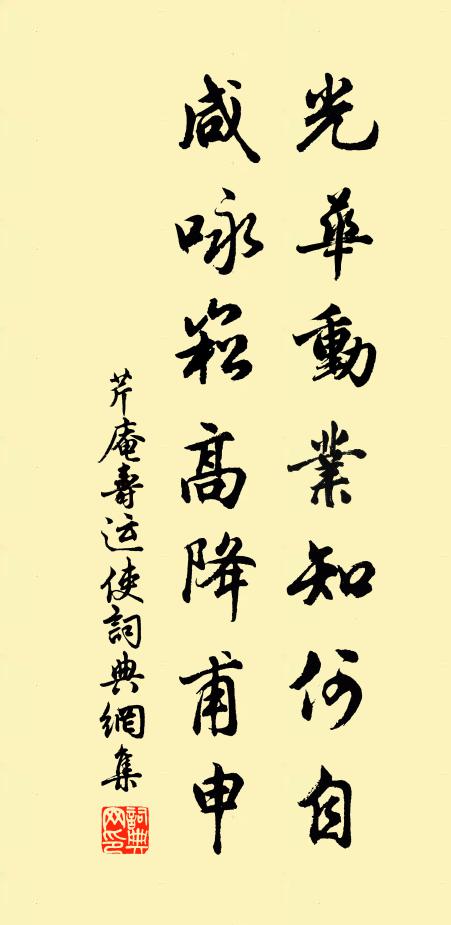 光華動業知何自
咸咏崧高降甫申
芹庵壽运使詞典網集
詞典网印